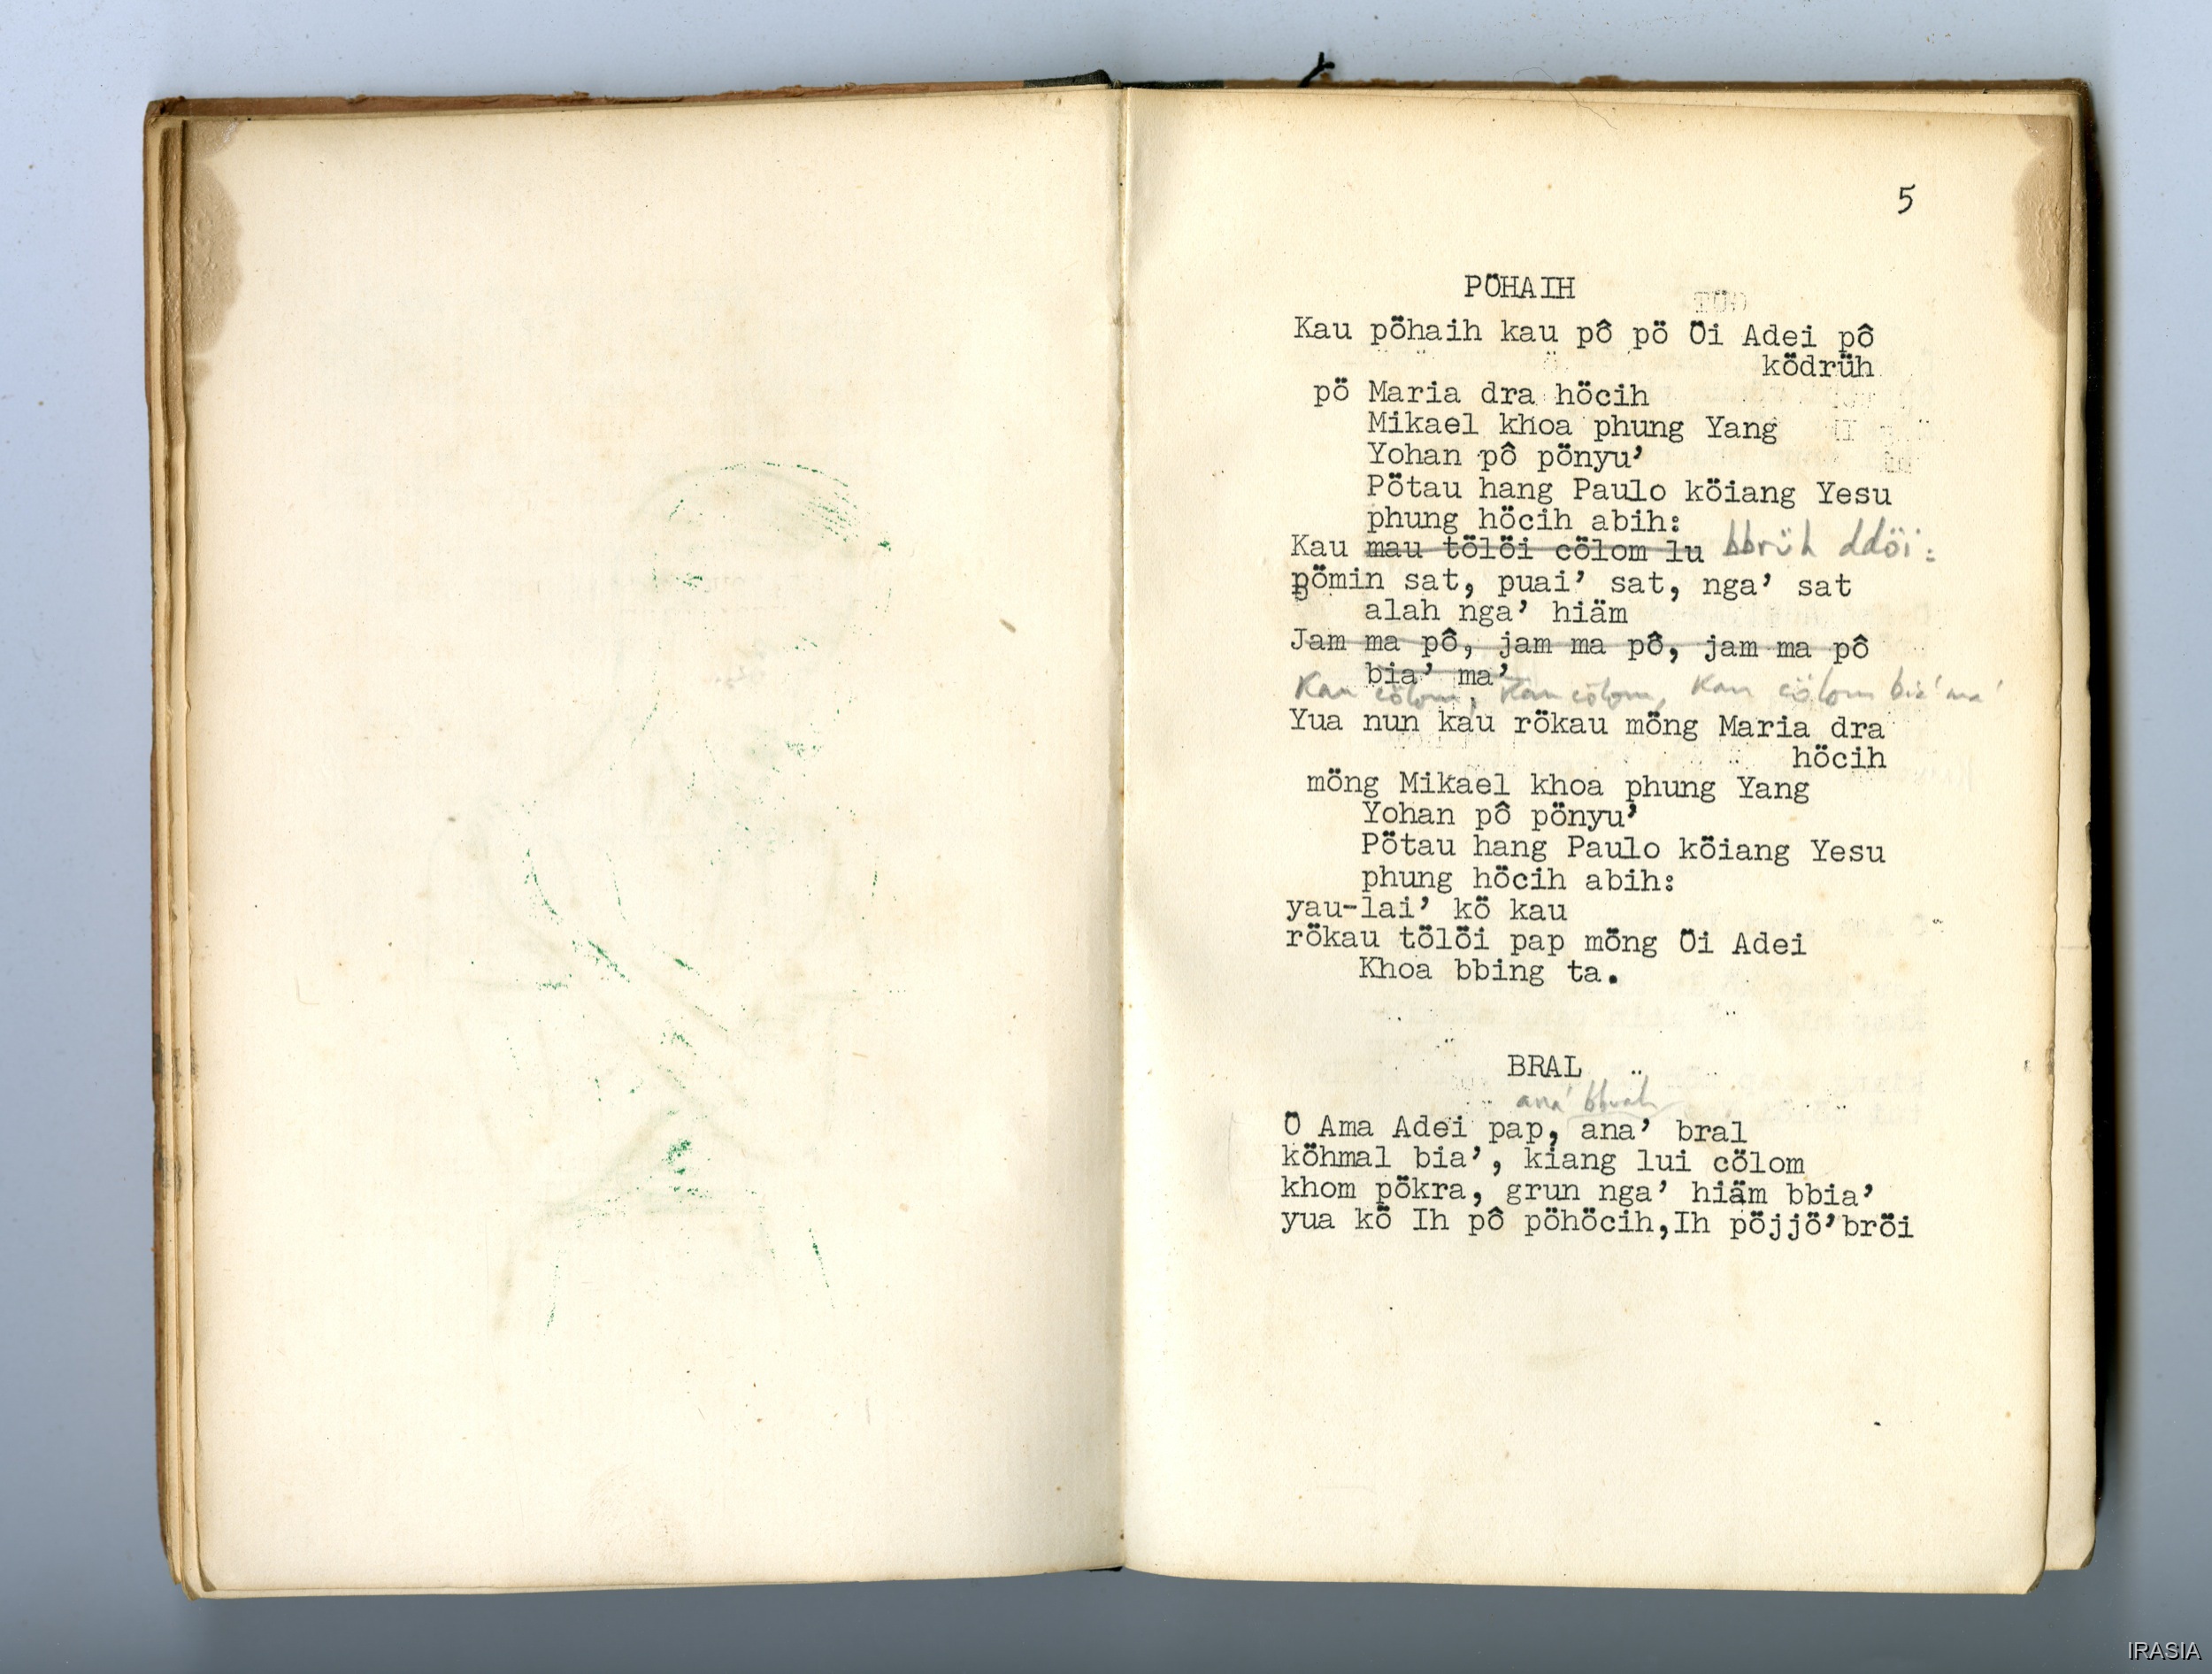 5
PÖHAIH
Kau pöhaih kau pô pö Öi Adei pô
ködrüh
pö Maria dra höcih
Mikael khoa phung Yang
Yohan pô pönyu’
Pötau hang Paulo köiang Yesu
phung höcih abih:
Kau mau tölöi cölom lu bbrüh ddöi:
pömin sat, puai’ sat, nga’ sat
alah nga’ hiäm
Jam ma pô, jam ma pô, jam ma pô
bia’ ma’
Kau cölom, Kau cölom, Kau cölom bia’ ma’
Yua nun kau rökau möng Maria dra
höcih
möng Mikael khoa phung Yang
Yohan pô pönyu’
Pötau hang Paulo köiang Yesu
phung höcih abih:
yau-lai’ kö kau
rökau tölöi pap möng Öi Adei
Khoa bbing ta.
BRAL
ana’
Ö Ama Adei pap, ana’ bral
köhmal bia’, kiang lui cölom
khom pökra, grun nga’ hiäm bbia’
yua kö Ih pô pöhöcih,Ih pöjjö’bröi
IRASIA